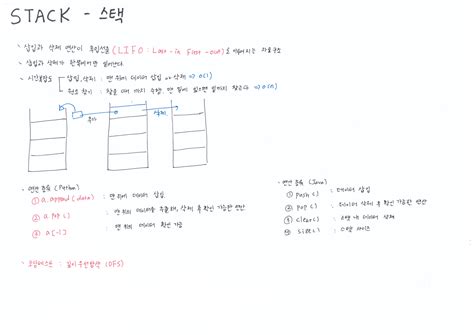 STACK - 스택
삽입과 삭제 연산이 후입선출 (LIFO : Last-in First-out)로 이뤄지는 자료구조
삽입과 삭제가 한쪽에서만 일어난다
시간복잡도 삽입, 삭제 : 맨 위에 데이터 삽입 or 삭제 => O(1)
원소 찾기 : 찾을 때 까지 수행. 맨 밑에 있으면 끝까지 찾는다 => O(n)
추가
삭제
연산 종류 (Python)
① a.append(data) : 맨 위에 데이터 삽입
② a.pop() : 맨 위의 데이터를 추출해, 삭제 후 확인 가능한 연산
③ a[-1] : 맨 위 데이터 확인 가능
연산 종류 (Java)
① push() : 데이터 삽입
② pop() : 데이터 삭제 후 확인 가능한 연산
③ clear() : 스택 내 데이터 삭제
④ size() : 스택 사이즈
코딩테스트 : 깊이우선탐색 (DFS)